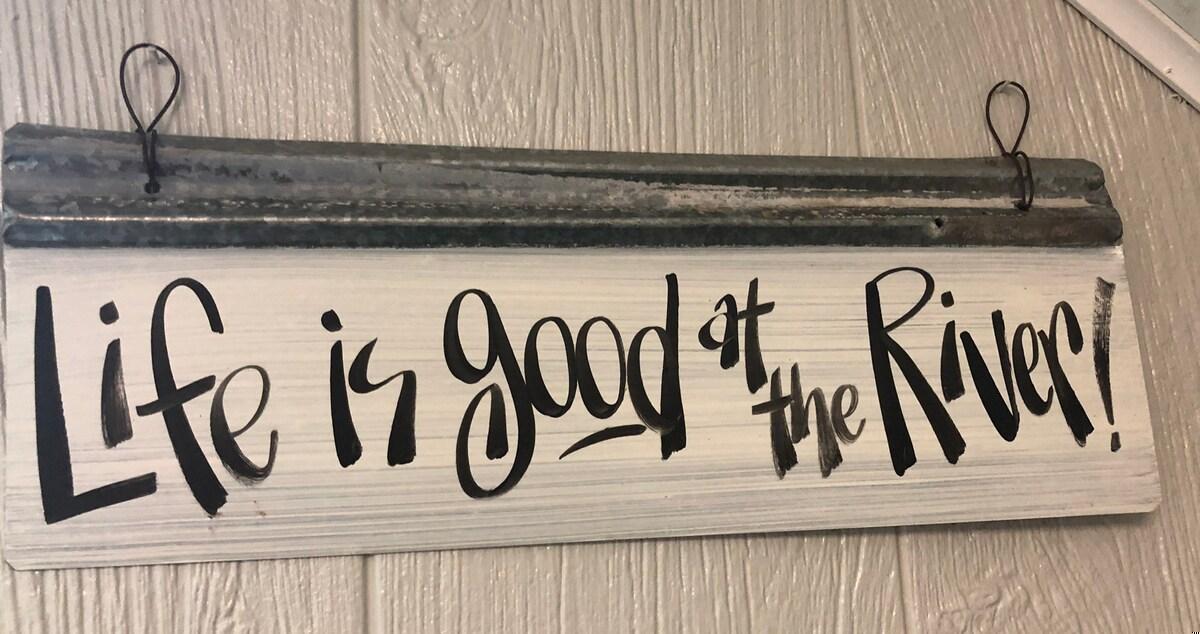 Life is good at the River!